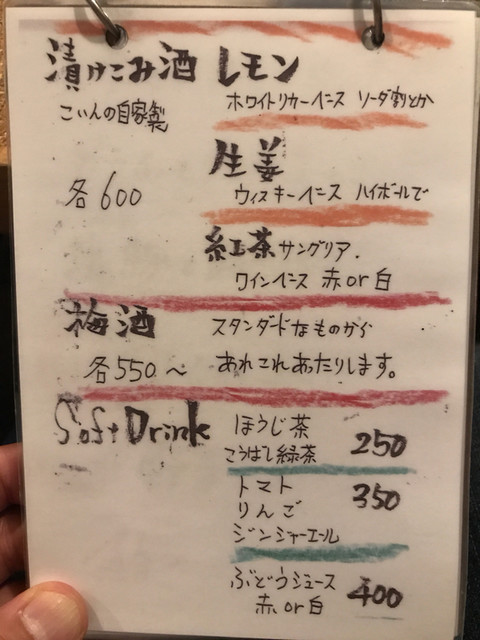 漬けこみ酒 レモン
こいんの自家製 ホワイトリカーベース ソーダ割とか
生姜
各600 ウィスキーベース ハイボールで
紅茶サングリア.
ワインベース 赤or白
梅酒 スタンダードなものから
各550〜 あれこれあったりします。
Soft Drink ほうじ茶
こうばし緑茶 250
トマト 350
りんご
ジンジャーエール
ぶどうジュース 400
赤or白